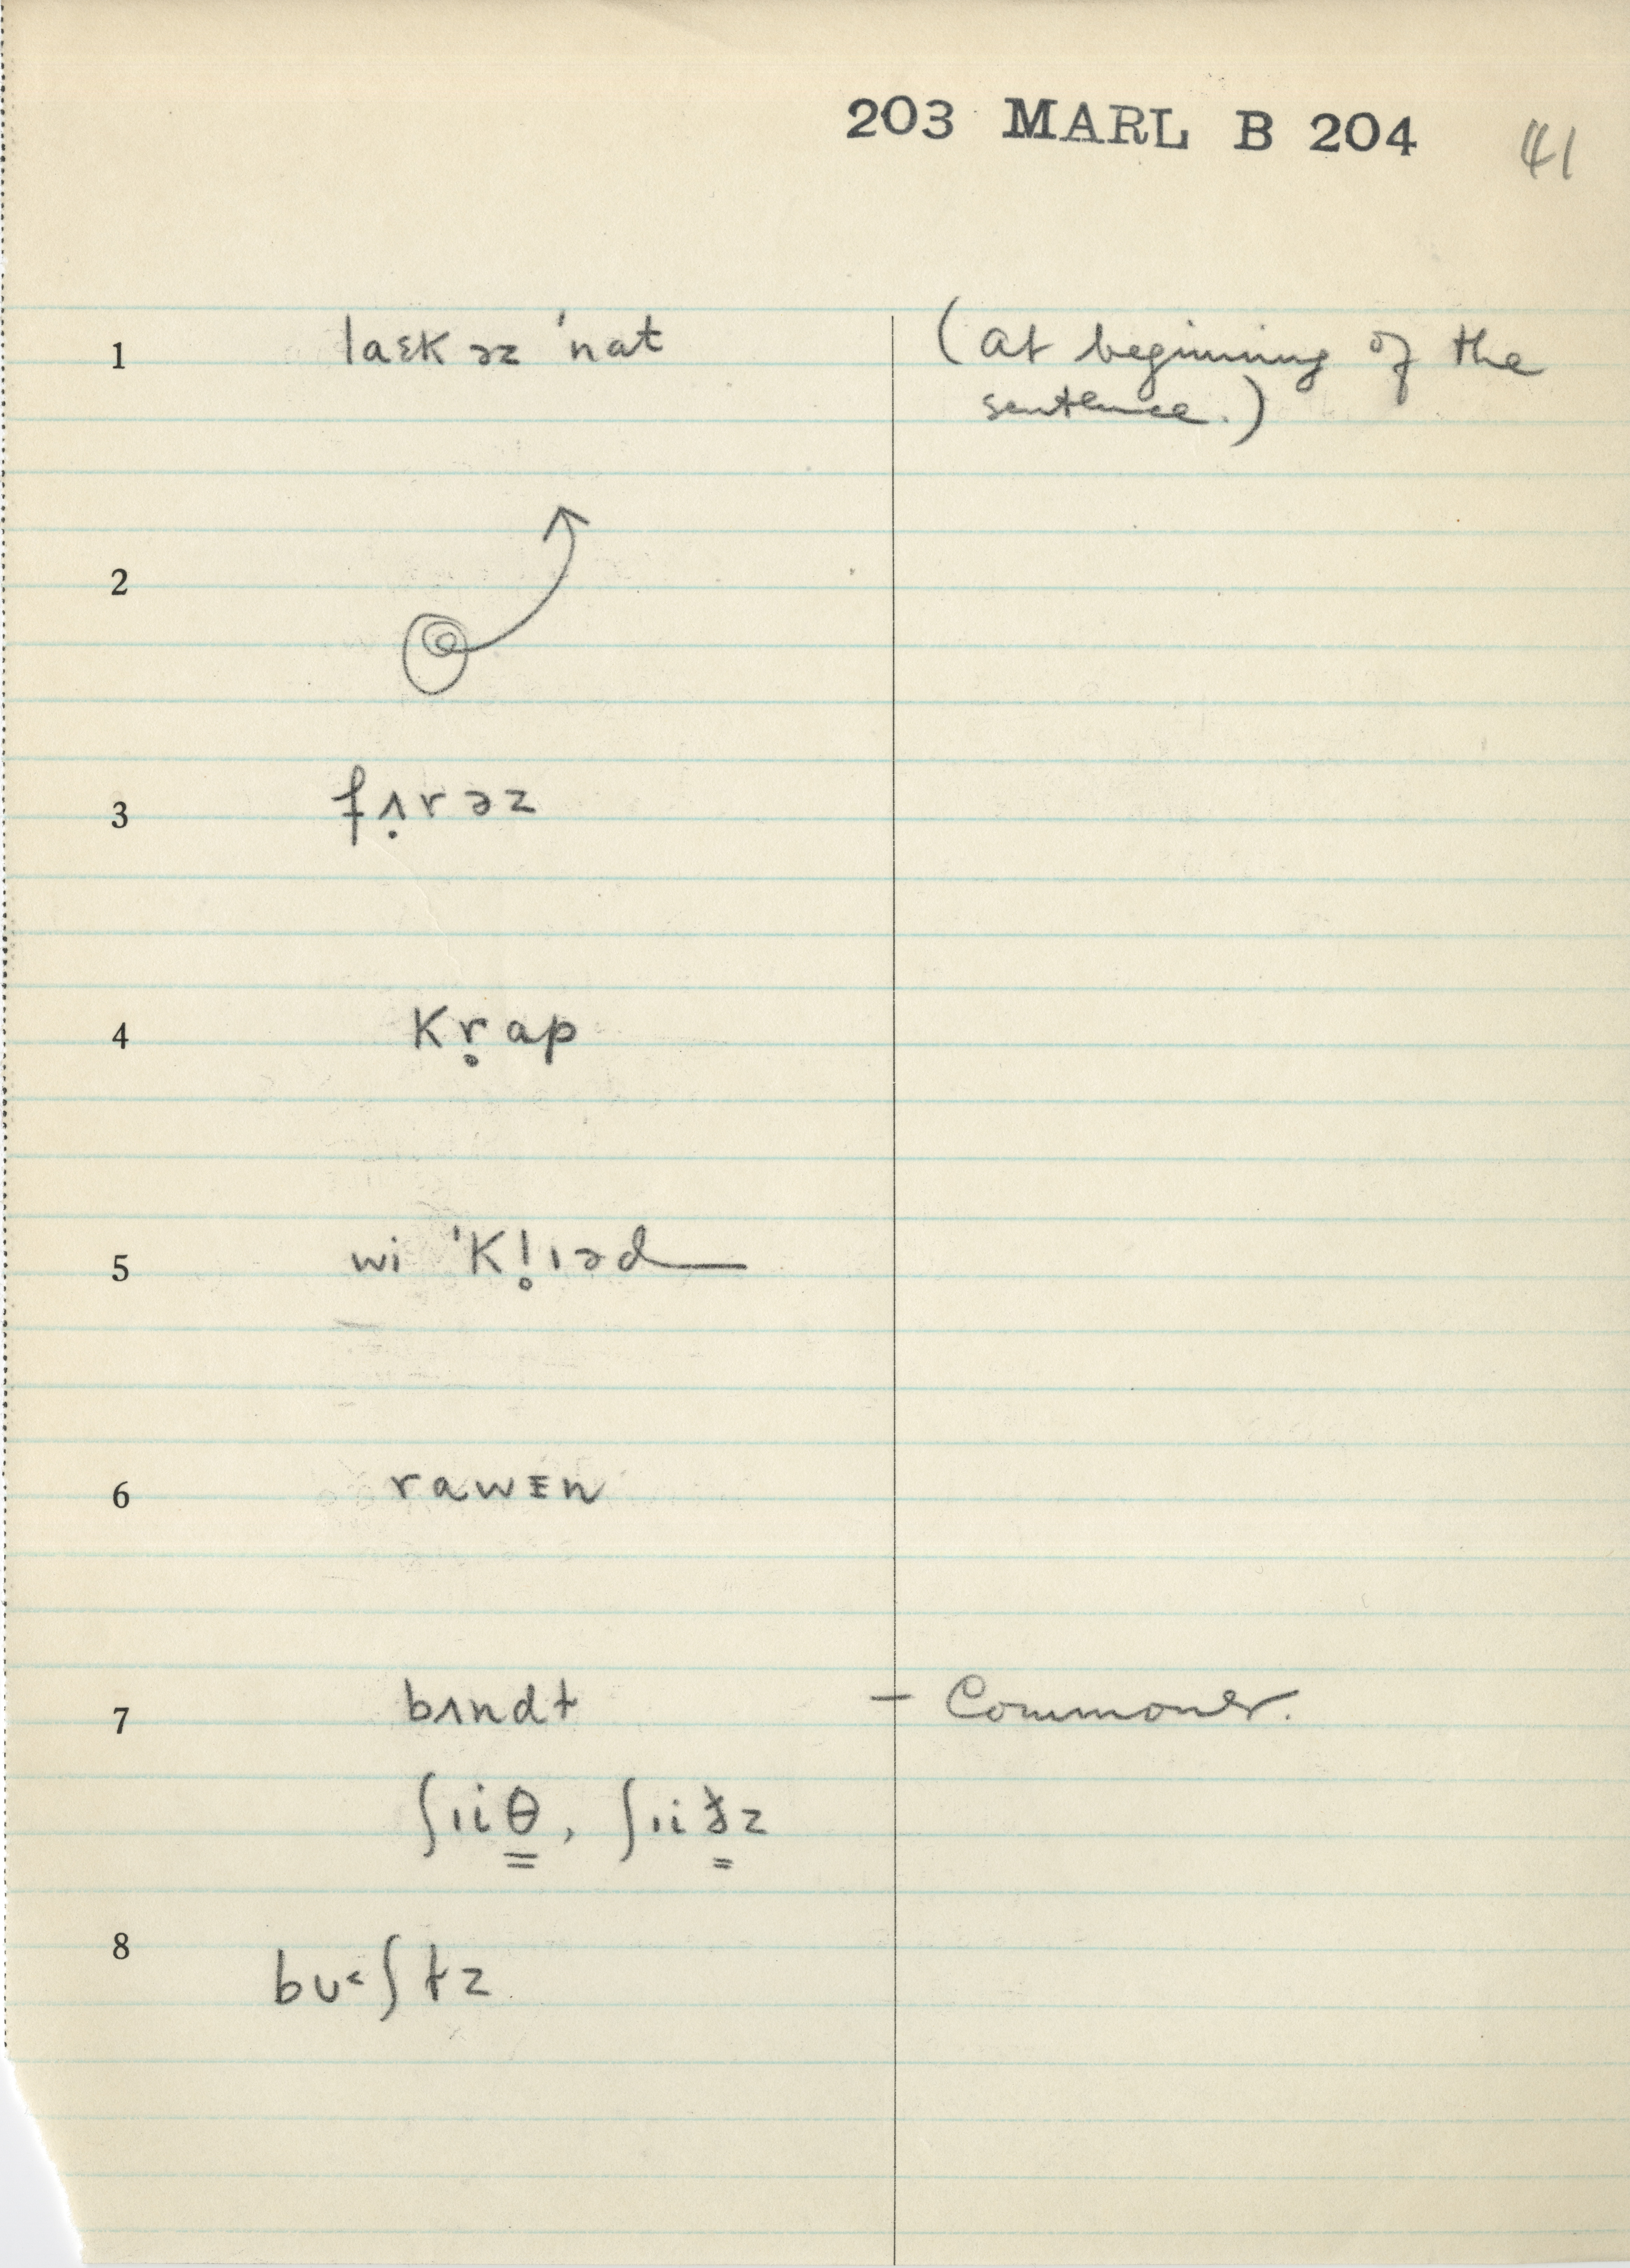 203 MARL B 204 41
1 laɛk əz ˈnat (at beginning of the
sentence.)
2 @
3 fʌ̣rəz
4 Kr̥ap
5 wi ˈKl̥ɪəd
6 rawᴇn
7 bʌndɫ – Commoner.
ʃɪiθ, ʃɪiðz
8 bʊ˂ʃɫz